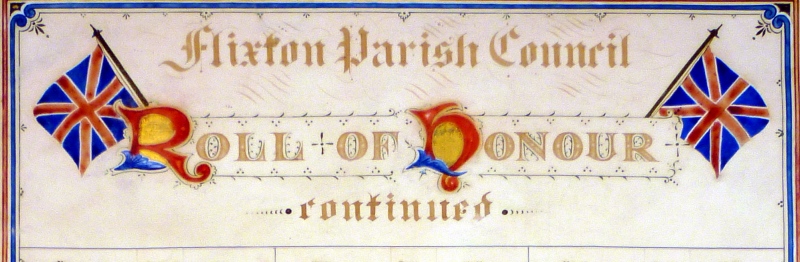 Flixton Parish Council
ROLL OF HONOUR
continued